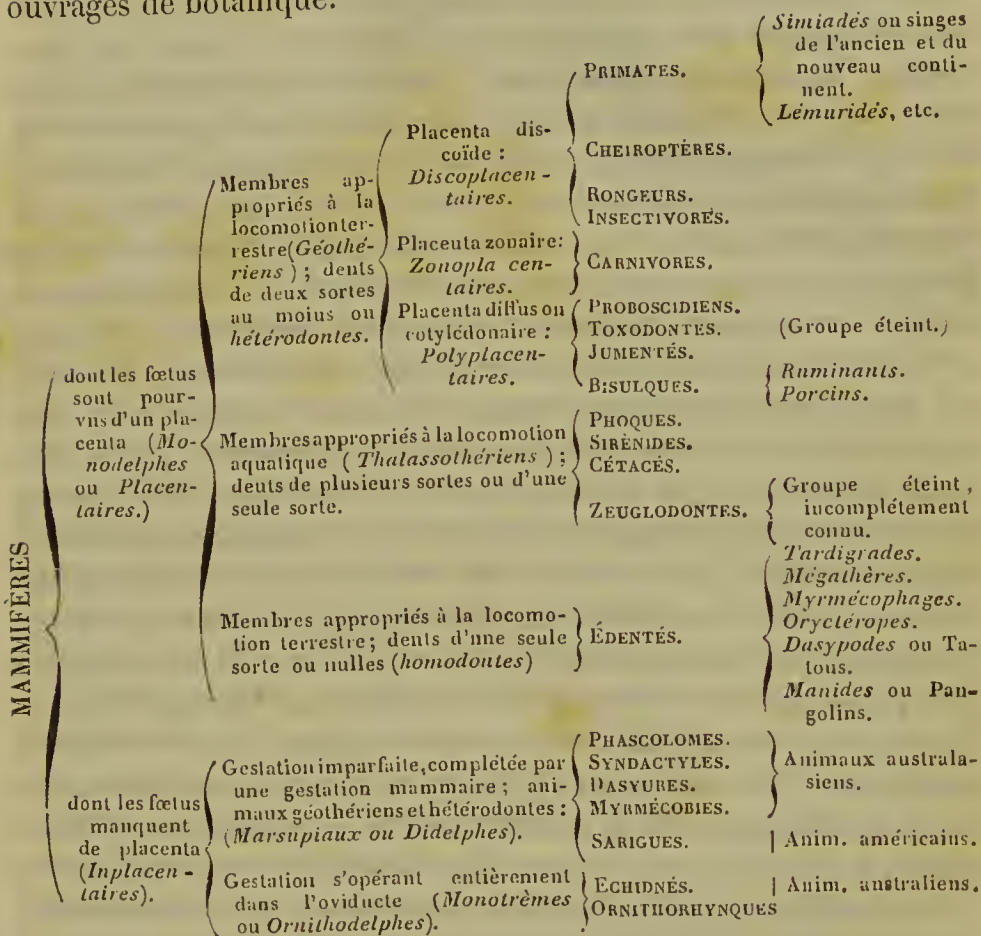 ouvrages de botanique.
MAMMIFÈRES
dont les fœtus
sont pour-
vus d'un pla-
centa (Mo-
nodelphes
ou Placen-
taires.)
Membres ap-
propriés à la
locomotion ter-
restre (Géothé-
riens) ; dents
de deux sortes
au moins ou
hétérodontes.
Placenta dis-
coïde :
Discoplacen-
taires.
PRIMATES.
Simiadés ou singes
de l'ancien et du
nouveau conti-
nent.
Lémuridés, etc.
CHEIROPTÈRES.
RONGEURS.
INSECTIVORES.
Placenta zonaire:
Zonopla centaires.
CARNIVORES.
Placenta diffus ou
cotylédonaire :
Polyplacen-
taires.
PROBOSCIDIENS.
TOXODONTES. (Groupe éteint.)
JUMENTÉS.
BISULQUES.
Ruminants.
Porcins.
Membres appropriés à la locomotion
aquatique (Thalassothériens) ;
dents de plusieurs sortes ou d'une
seule sorte.
PHOQUES.
SIRÉNIDES.
CÉTACÉS.
ZEUGLODONTES.
Groupe éteint,
incomplétement
connu.
Membres appropriés à la locomo-
tion terrestre; dents d'une seule
sorte ou nulles (homodontes)
ÉDENTÉS.
Tardigrades.
Mégathères.
Myrmécophages.
Oryctéropes.
Dasypodes ou Ta-
tous.
Manides ou Pan-
golins.
dont les fœtus
manquent
de placenta
(Inplacen-
taires).
Gestation imparfaite, complétée par
une gestation mammaire ; ani-
maux géothériens et hétérodontes :
(Marsupiaux ou Didelphes).
PHASCOLOMES.
SYNDACTYLES.
DASYURES.
MYRMÉCOBIES.
Animaux australa-
siens.
SARIGUES. Anim. américains.
Gestation s'opérant entièrement
dans l'oviducte (Monotrèmes
ou Ornithodelphes).
ECHIDNÉS. Anim. australiens.
ORNITHORHYNQUES